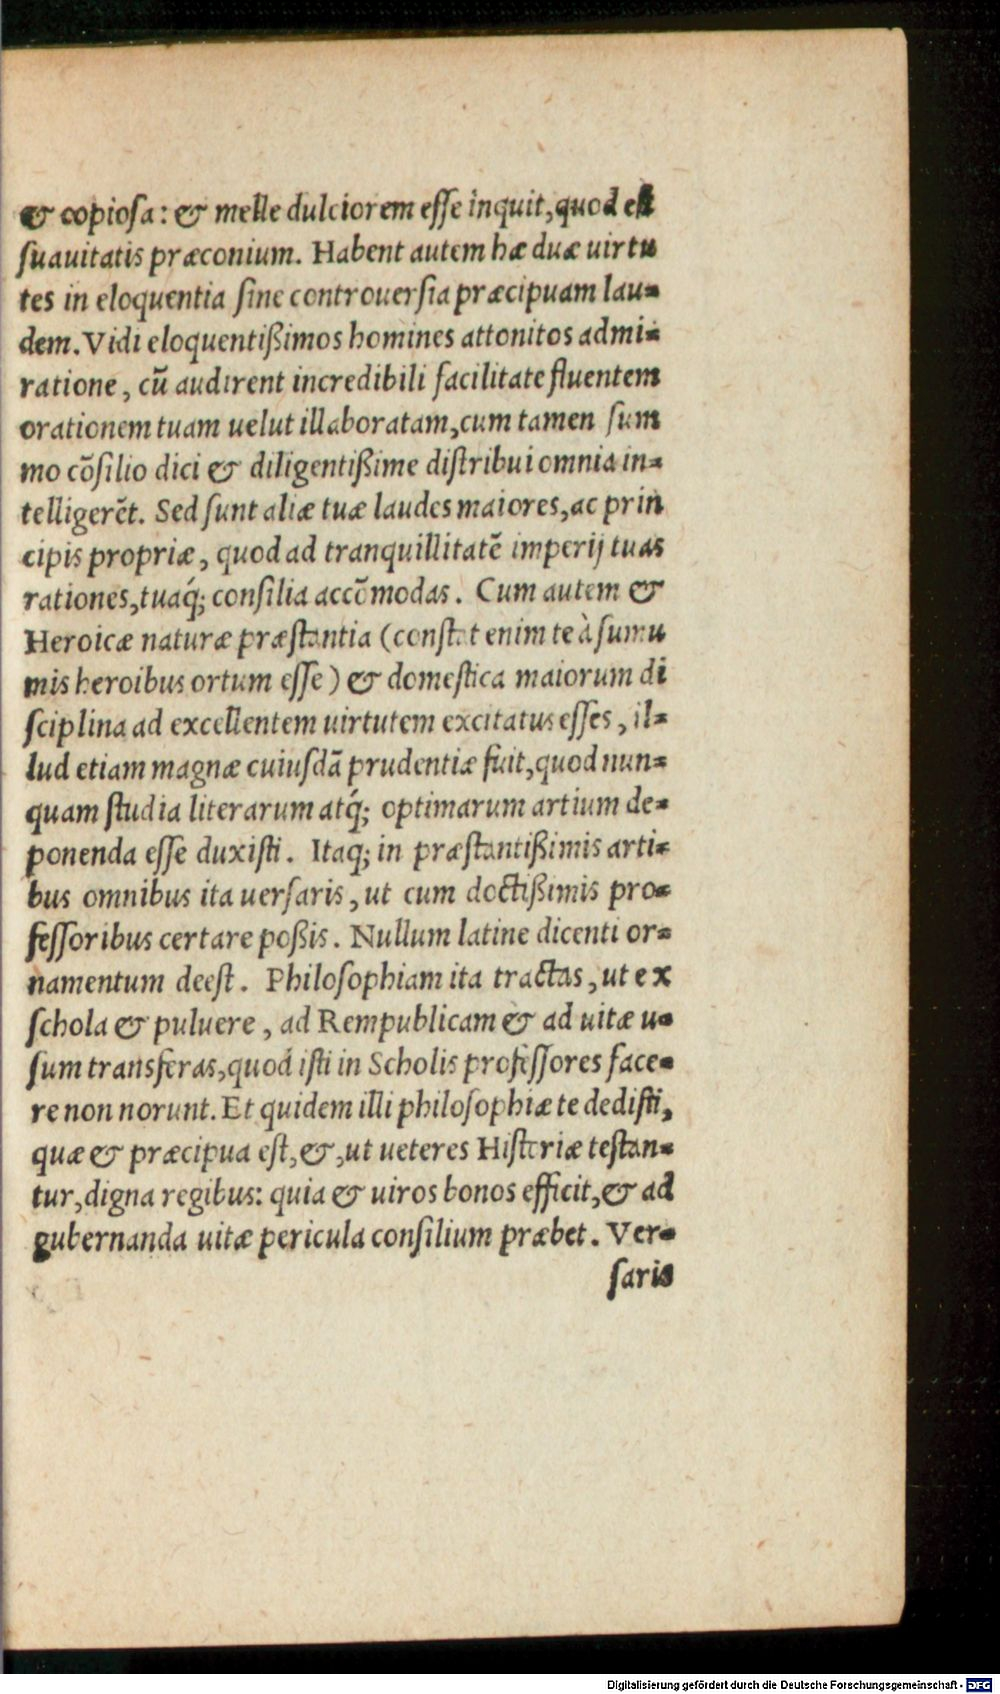 & copioſa: & melle dulciorem eſſe inquit, quod eſt
ſuauitatis præconium. Habent autem hæ duæ uirtu
tes in eloquentia ſine controuerſia præcipuam lau-
dem. Vidi eloquentißimos homines attonitos admi-
ratione, cũ audirent incredibili facilitate fluentem
orationem tuam uelut illaboratam, cum tamen ſum
mo cõſilio dici & diligentißime diſtribui omnia in-
telligerẽt. Sed ſunt aliæ tuæ laudes maiores, ac prin
cipis propriæ, quod ad tranquillitatẽ imperij tuas
rationes, tuaq́; conſilia accõmodas. Cum autem &
Heroicæ naturæ præſtantia (conſtat enim te à ſumu
mis heroibus ortum eſſe) & domeſtica maiorum di
ſciplina ad excellentem uirtutem excitatus eſſes, il-
lud etiam magnæ cuiuſdã prudentiæ fuit, quod nun-
quam ſtudia literarum atq́; optimarum artium de-
ponenda eſſe duxiſti. Itaq; in præſtantißimis arti-
bus omnibus ita uerſaris, ut cum doctißimis pro-
feſſoribus certare poßis. Nullum latine dicenti or-
namentum deeſt. Philoſophiam ita tractas, ut ex
ſchola & puluere, ad Rempublicam & ad uitæ u-
ſum transferas, quod iſti in Scholis profeſſores face-
re non norunt. Et quidem illi philoſophiæ te dediſti,
quæ & præcipua eſt, &, ut ueteres Hiſtoriæ teſtan-
tur, digna regibus: quia & uiros bonos efficit, & ad
gubernanda uitæ pericula conſilium præbet. Ver-
ſaris
Digitalisierung gefördert durch die Deutsche Forschungsgemeinschaft - DFG